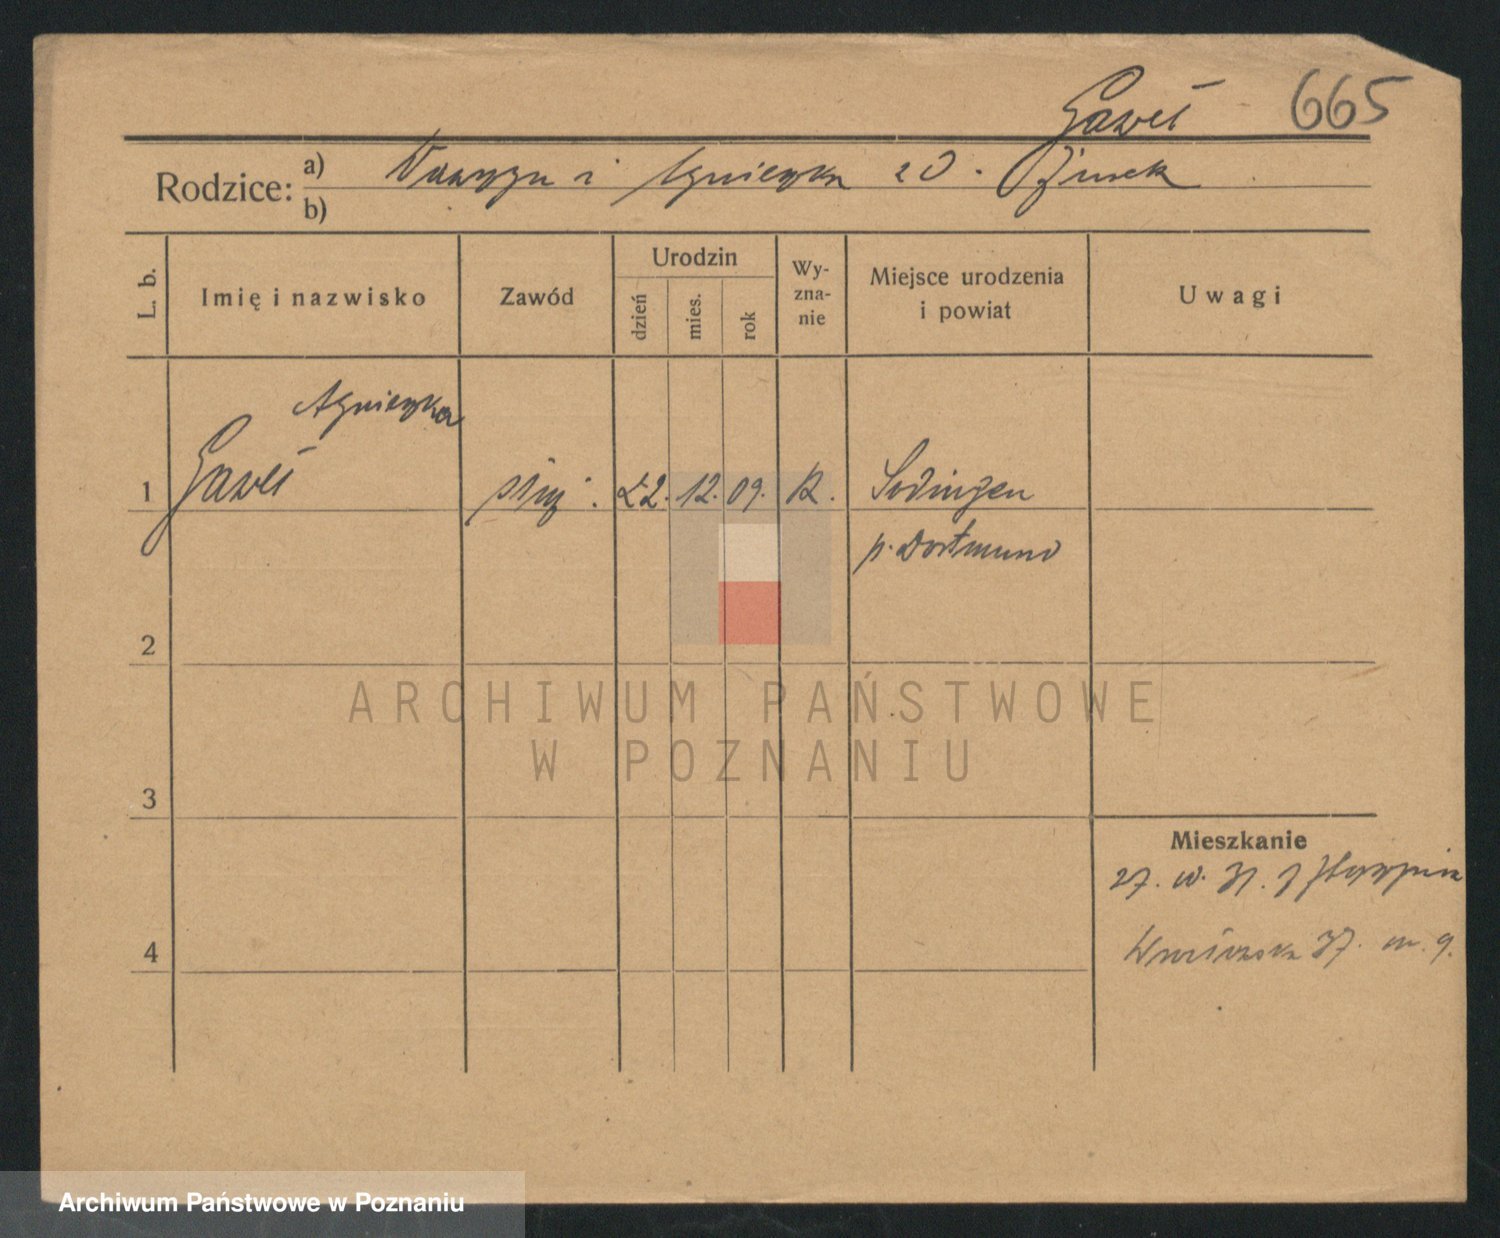 Gaweł 665
Rodzice: a) Wawrzyn i Agnieszka z D.
b)
L. b.
Imię i nazwisko
Zawód
Urodzin
dzień
mies.
rok
Wy-
zna-
nie
Miejsce urodzenia
i powiat
Uwagi
Agnieszka
1 Gaweł służ. 22. 12. 09. R. Sodingen
p. Dortmund
2
3
4
Mieszkanie
27. 31.
37. m. 9.
ARCHIWUM PAŃSTWOWE
W POZNANIU
Archiwum Państwowe w Poznaniu